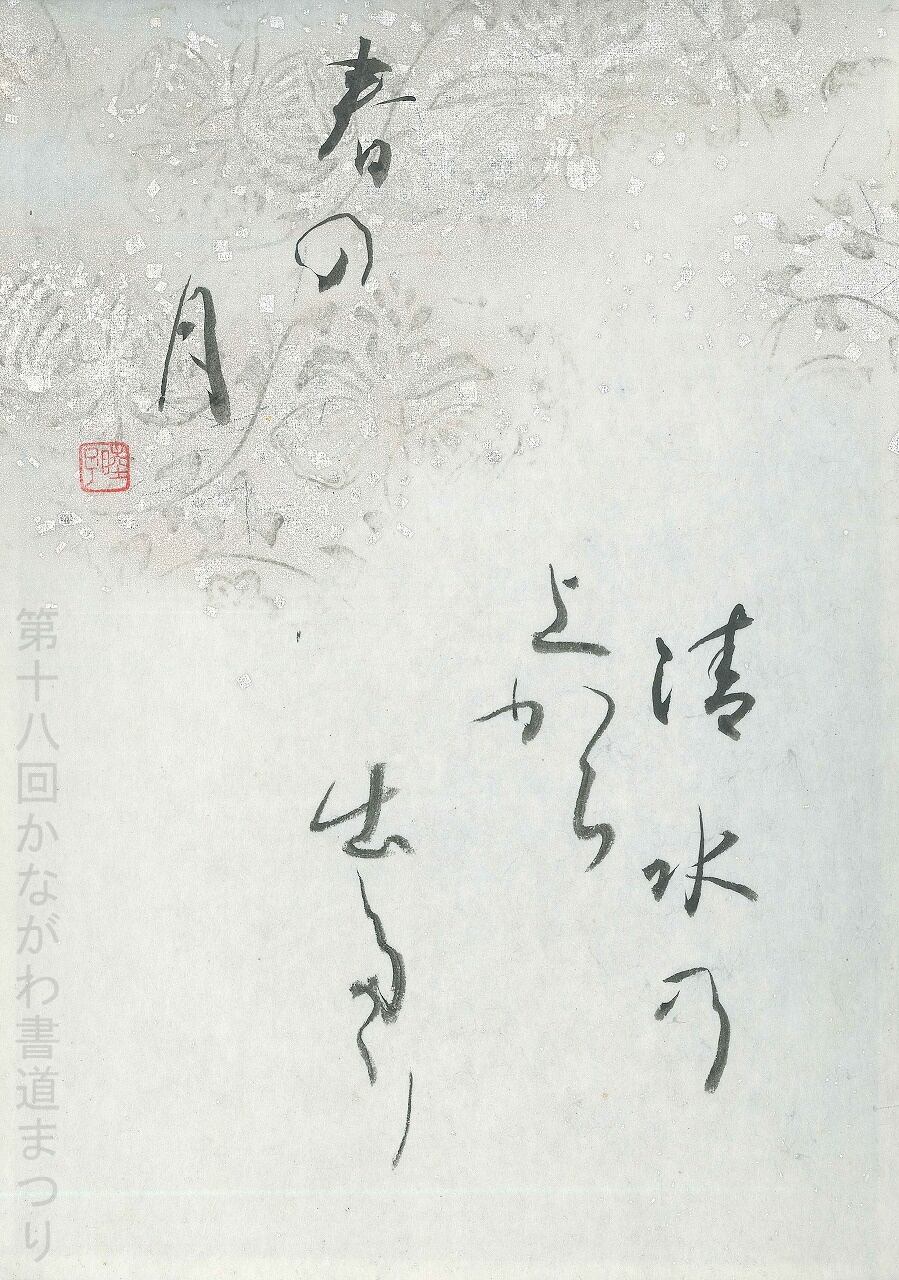 清水の
上から
出たり
春の
月
第十八回かながわ書道まつり